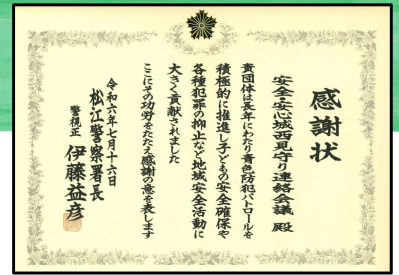 感謝状
安全・安心城西見守り連絡会議 殿
貴団体は長年にわたり青色防犯パトロールを
積極的に推進し子どもの安全確保や
各種犯罪の抑止など地域安全活動に
大きく貢献されました
ここにその功労をたたえ感謝の意を表します
令和六年七月十六日
松江警察署長
警視正 伊藤益彦